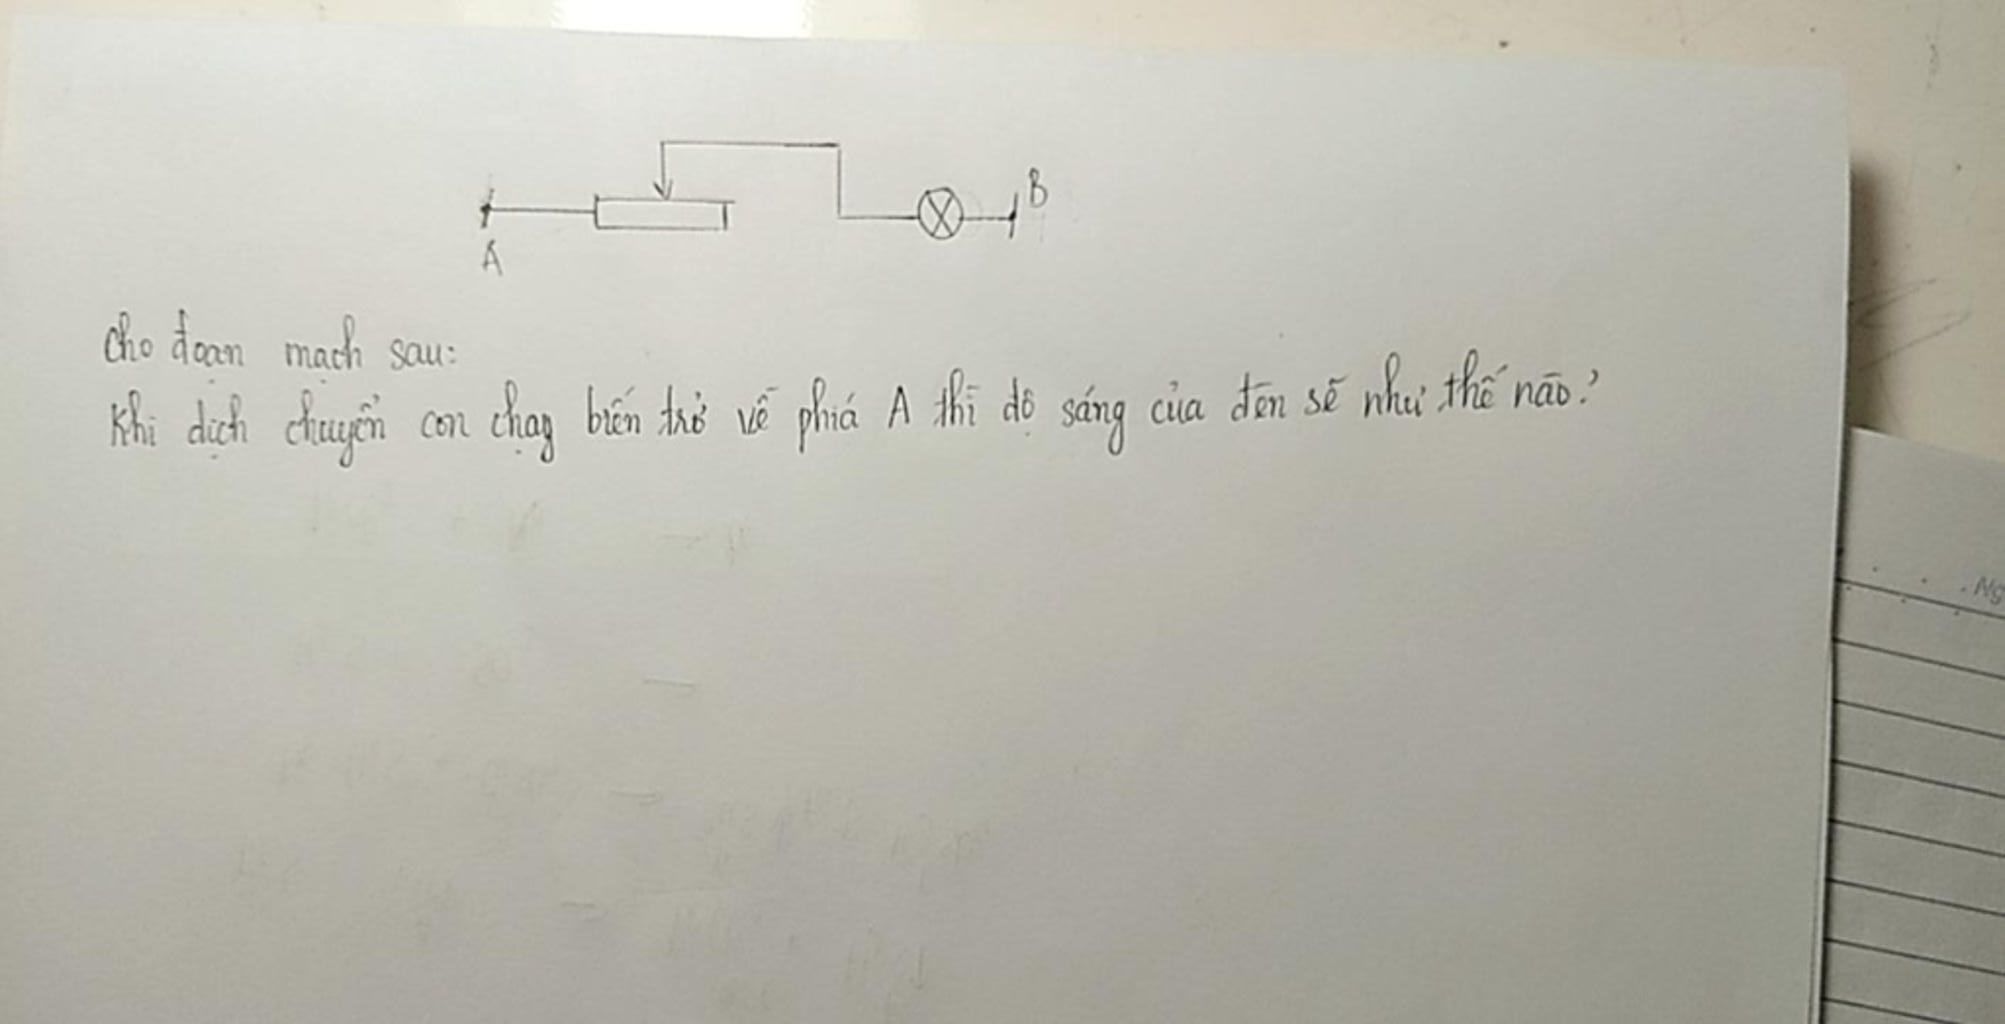 A
B
Cho đoạn mạch sau:
Khi dịch chuyển con chạy biến trở về phiá A thì độ sáng của đèn sẽ như thế nào?
Ng